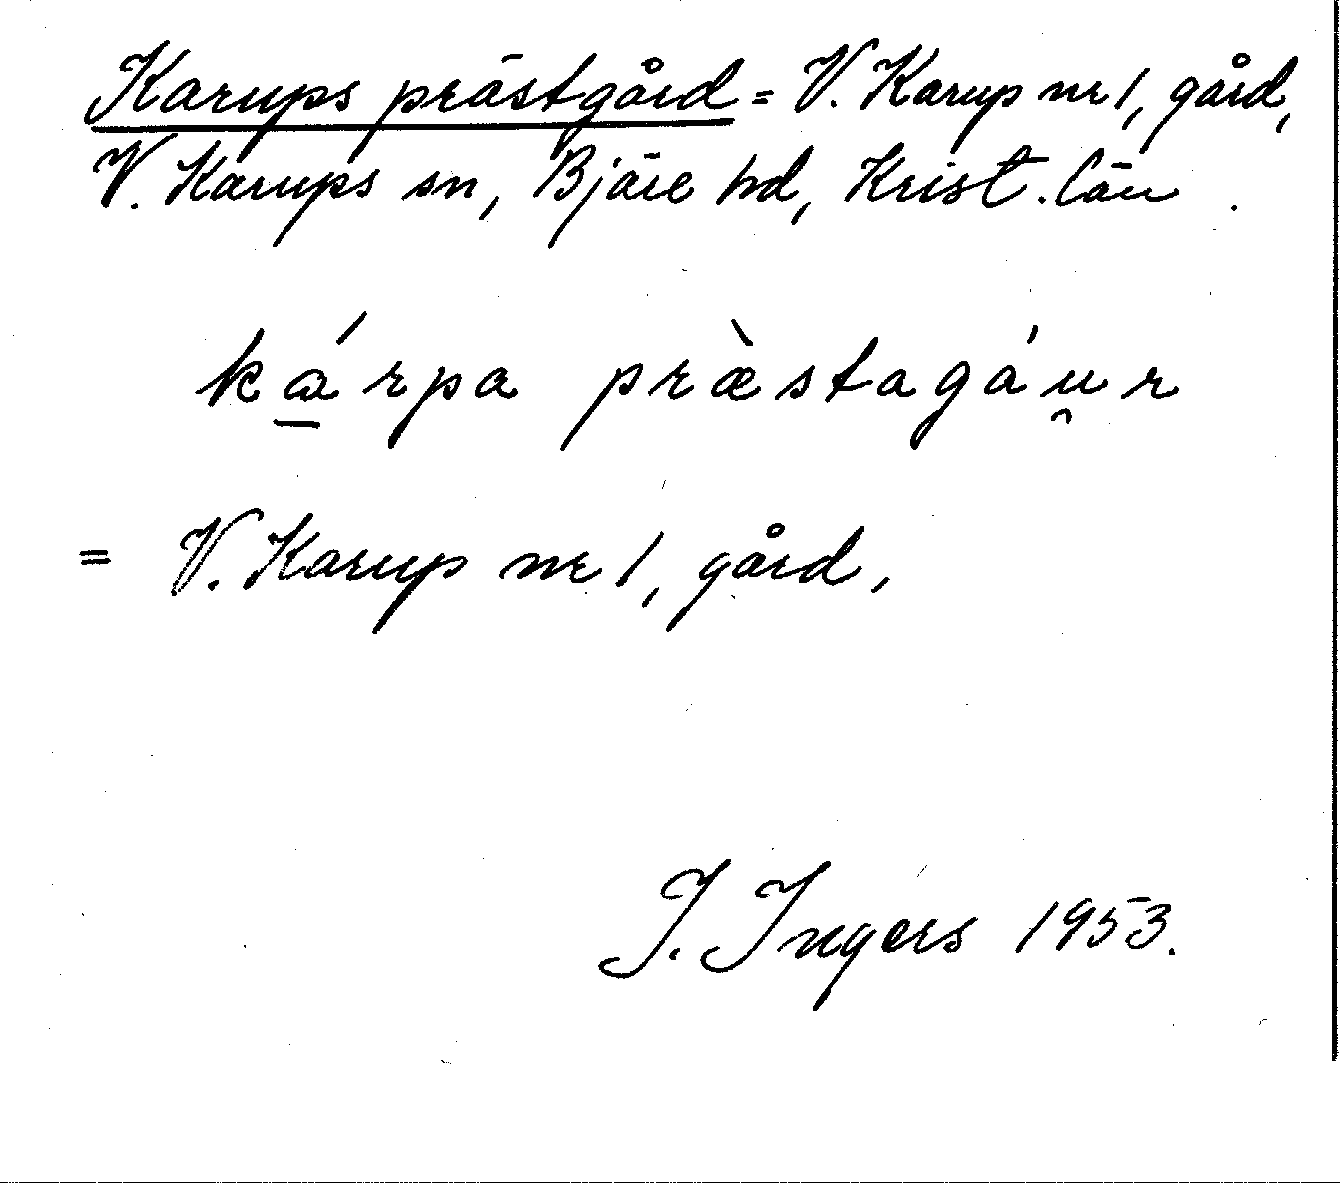 Karups prästgård = V. Karup nr 1, gård,
V. Karups sn, Bjäre hd, Krist. län.
ká̱rpa præ̀stagáu̯r
= V. Karup nr 1, gård,
I. Ingers 1953.